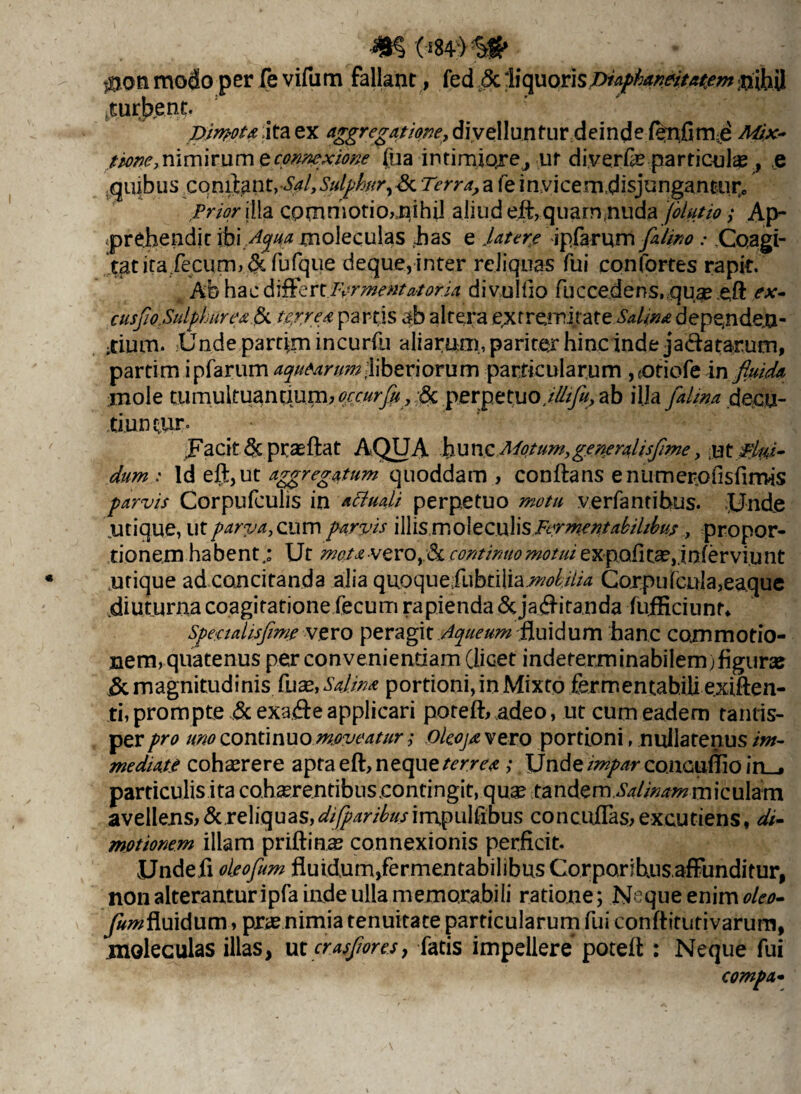 (184)
non modo per ſe viſum fallant, ſed & liquoris Diaphaneitatem nihil
turbent.
Dimota ita ex aggregatione, divelluntur deinde ſenſimꝙe Mix-
tione, nimirum e connexione ſua intimiore, ut diverſæ particulæ, e
quibus conſtant, Sal, Sulphur, & Terra, a ſe invicem disjungantur.
Prior illa commotio, nihil aliud eſt, quam nuda ſolutio; Ap-
prehendit ibi Aqua moleculas has e latere ipſarum ſalino: Coagi-
tat ita ſecum, & ſuſque deque, inter reliquas ſui conſortes rapit.
Ab hac differt Fermentatoria divulſio ſuccedens, quæ eſt ex-
cusſio Sulphureæ & terreæ partis ab altera extremitate Salina dependen-
tium. Unde partim incurſu aliarum, pariter hinc inde jactatarum,
partim ipſarum aquearum liberiorum particularum, otioſe in fluida
mole tumultuantium, occurſu, & perpetuo illiſu, ab illa ſalina decu-
tiuntur.
Facit & præſtat AQUA hunc Motum, generalisſime, ut Flui-
dum: Id eſt, ut aggregatum quoddam, conſtans e numeroſisſimis
parvis Corpuſculis in actuali perpetuo motu verſantibus. Unde
utique, ut parva, cum parvis illis moleculis Fermentabilibus, propor-
tionem habent; Ut mota vero, & continuo motui expoſitæ, inſerviunt
utique ad concitanda alia quoque ſubtilia mobilia Corpuſcula, eaque
diuturna coagitatione ſecum rapienda & jactitanda ſufficiunt.
Specialisſime vero peragit Aqueum fluidum hanc commotio-
nem, quatenus per convenientiam (licet indeterminabilem) figuræ
& magnitudinis ſuæ, Salinæ portioni, in Mixto fermentabili exiſten-
ti, prompte & exacte applicari poteſt, adeo, ut cum eadem tantis-
per pro uno continuo moveatur; Oleoſæ vero portioni, nullatenus im-
mediate cohærere apta eſt, neque terreæ; Unde impar concuſſio in
particulis ita cohærentibus contingit, quæ tandem Salinam miculam
avellens, & reliquas, diſparibus impulſibus concuſſas, excutiens, di-
motionem illam priſtinæ connexionis perficit.
Unde ſi oleoſum fluidum, fermentabilibus Corporibus affunditur,
non alterantur ipſa inde ulla memorabili ratione; Neque enim oleo-
ſum fluidum, præ nimia tenuitate particularum ſui conſtitutivarum,
moleculas illas, ut crasſiores, ſatis impellere poteſt: Neque ſui
compa-